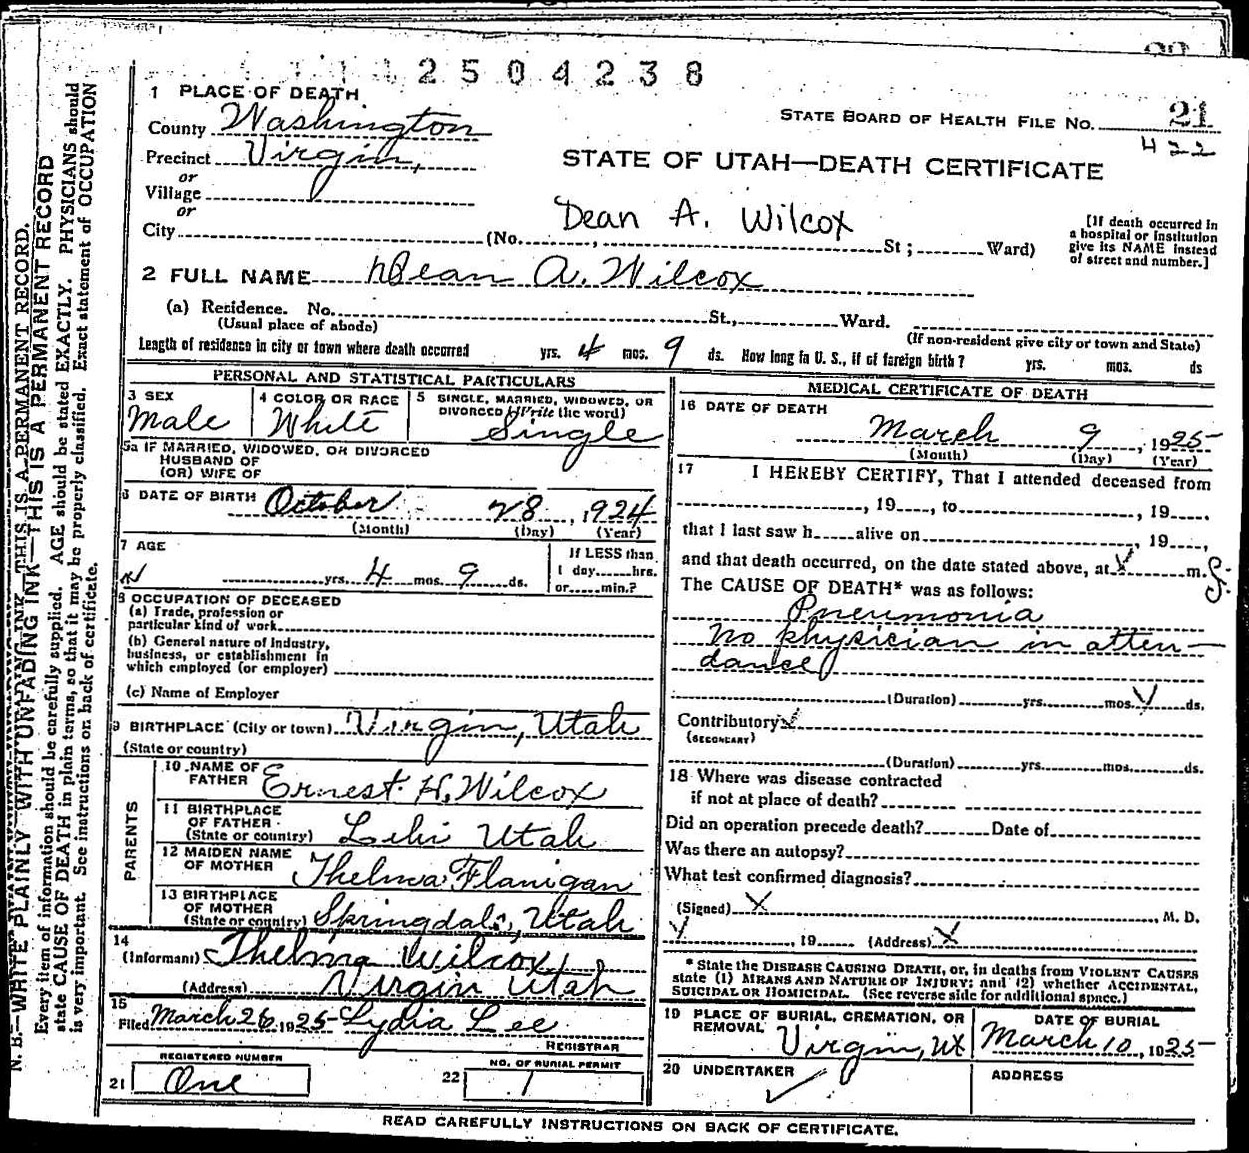 2504238
1 PLACE OF DEATH
STATE BOARD OF HEALTH FILE NO. 21
422
County Washington
Precinct Virgin,
STATE OF UTAH—DEATH CERTIFICATE
or
Village
or
Dean A. Wilcox
City (No. , St; Ward)
[If death occurred in
a hospital or institution
give its NAME instead
of street and number.]
2 FULL NAME Dean A. Wilcox
(a) Residence. No. St., Ward.
(Usual place of abode)
(If non-resident give city or town and State)
Length of residence in city or town where death occurred yrs. 4 mos. 9 ds. How long in U. S., if of foreign birth? yrs. mos. ds
PERSONAL AND STATISTICAL PARTICULARS
3 SEX
Male
4 COLOR OR RACE
White
5 SINGLE, MARRIED, WIDOWED, OR
DIVORCED (Write the word)
Single
5a IF MARRIED, WIDOWED, OR DIVORCED
HUSBAND OF
(OR) WIFE OF
6 DATE OF BIRTH October 28, 1924
(Month) (Day) (Year)
7 AGE
yrs. 4 mos. 9 ds.
If LESS than
1 day hrs.
or min.?
8 OCCUPATION OF DECEASED
(a) Trade, profession or
particular kind of work
(b) General nature of industry,
business, or establishment in
which employed (or employer)
(c) Name of Employer
9 BIRTHPLACE (City or town) Virgin, Utah
(State or country)
PARENTS
10 NAME OF
FATHER Ernest H. Wilcox
11 BIRTHPLACE
OF FATHER
(State or country) Lehi Utah
12 MAIDEN NAME
OF MOTHER Thelma Flanigan
13 BIRTHPLACE
OF MOTHER
(State or country) Springdale, Utah
14
(Informant) Thelma Wilcox
(Address) Virgin Utah
15
Filed March 26 1925 Lydia Lee
REGISTRAR
REGISTERED NUMBER
21 One
NO. OF BURIAL PERMIT
22 1
MEDICAL CERTIFICATE OF DEATH
16 DATE OF DEATH
March 9, 1925
(Month) (Day) (Year)
17 I HEREBY CERTIFY, That I attended deceased from
, 19 , to , 19
that I last saw h alive on , 19 ,
and that death occurred, on the date stated above, at m.
The CAUSE OF DEATH* was as follows:
Pneumonia
No physician in atten-
dance
(Duration) yrs. mos. ds.
Contributory
(SECONDARY)
(Duration) yrs. mos. ds.
18 Where was disease contracted
if not at place of death?
Did an operation precede death? Date of
Was there an autopsy?
What test confirmed diagnosis?
(Signed) X , M. D.
, 19 (Address) X
* State the DISEASE CAUSING DEATH, or, in deaths from VIOLENT CAUSES
state (1) MEANS AND NATURE OF INJURY; and (2) whether ACCIDENTAL,
SUICIDAL OR HOMICIDAL. (See reverse side for additional space.)
19 PLACE OF BURIAL, CREMATION, OR
REMOVAL Virgin, Ut
DATE OF BURIAL
March 10, 1925
20 UNDERTAKER
ADDRESS
READ CAREFULLY INSTRUCTIONS ON BACK OF CERTIFICATE.
N. B.—WRITE PLAINLY WITH UNFADING INK—THIS IS A PERMANENT RECORD
Every item of information should be carefully supplied. AGE should be stated EXACTLY. PHYSICIANS should
state CAUSE OF DEATH in plain terms, so that it may be properly classified. Exact statement of OCCUPATION
is very important. See instructions on back of certificate.